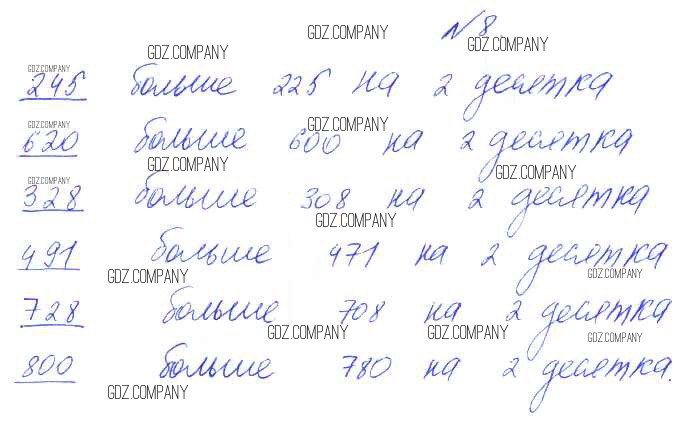 GDZ.COMPANY №8
GDZ.COMPANY GDZ.COMPANY
GDZ.COMPANY
245 больше 225 на 2 десятка
GDZ.COMPANY GDZ.COMPANY
620 больше 600 на 2 десятка
GDZ.COMPANY GDZ.COMPANY
GDZ.COMPANY
328 больше 308 на 2 десятка
GDZ.COMPANY
491 больше 471 на 2 десятка
GDZ.COMPANY GDZ.COMPANY
728 больше 708 на 2 десятка
GDZ.COMPANY GDZ.COMPANY GDZ.COMPANY
800 больше 780 на 2 десятка.
GDZ.COMPANY